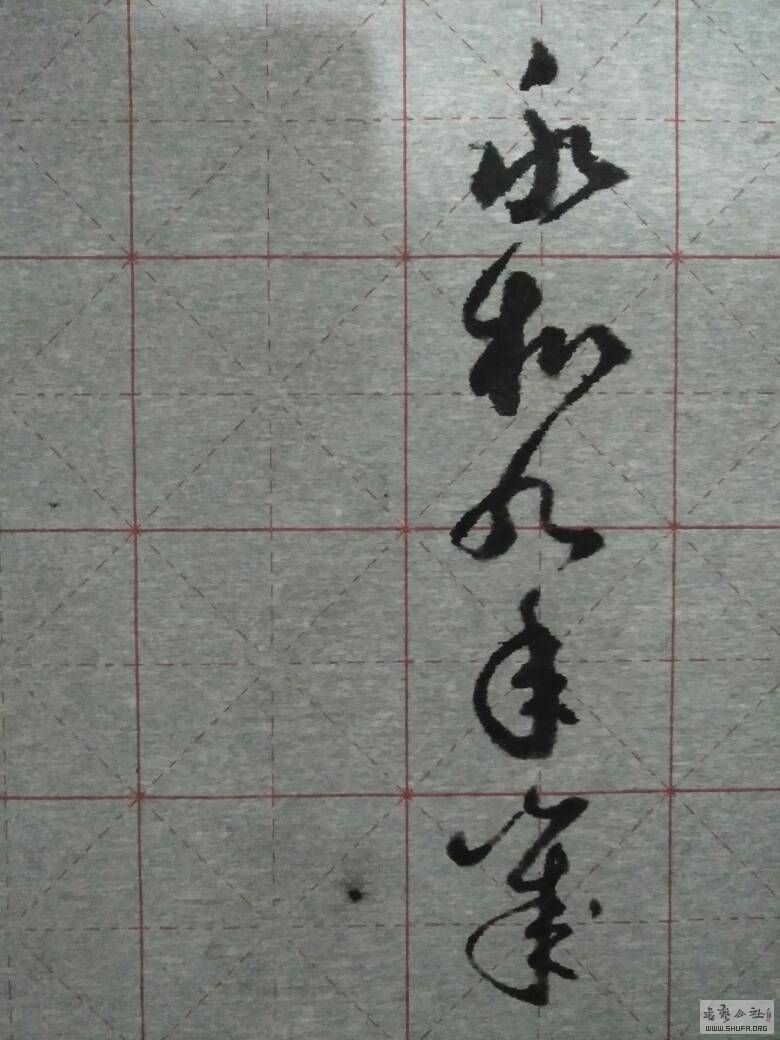 永和九年岁
书艺公社
WWW.SHUFA.ORG